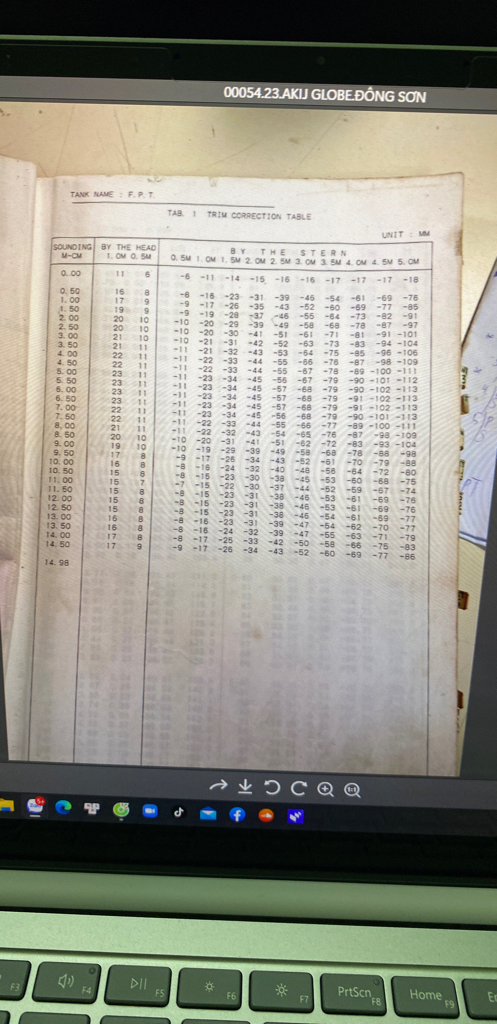 00054.23.AKIJ GLOBE.ĐÔNG SƠN
TANK NAME : F. P. T.
TAB. 1 TRIM CORRECTION TABLE
UNIT : MM
SOUNDING BY THE HEAD BY THE STERN
M-CM 1.0M 0.5M 0.5M 1.0M 1.5M 2.0M 2.5M 3.0M 3.5M 4.0M 4.5M 5.0M
0.00 11 6 -6 -11 -14 -15 -16 -16 -17 -17 -17 -18
0.50 16 8 -8 -16 -23 -31 -39 -46 -54 -61 -69 -76
1.00 17 9 -9 -17 -26 -35 -43 -52 -60 -69 -77 -85
1.50 19 9 -9 -19 -28 -37 -46 -55 -64 -73 -82 -91
2.00 20 10 -10 -20 -29 -39 -49 -58 -68 -78 -87 -97
2.50 20 10 -10 -20 -30 -41 -51 -61 -71 -81 -91 -101
3.00 21 10 -10 -21 -31 -42 -52 -63 -73 -83 -94 -104
3.50 21 11 -11 -21 -32 -43 -53 -64 -75 -85 -96 -106
4.00 22 11 -11 -22 -33 -44 -55 -66 -76 -87 -98 -109
4.50 22 11 -11 -22 -33 -44 -55 -67 -78 -89 -100 -111
5.00 23 11 -11 -23 -34 -45 -56 -67 -79 -90 -101 -112
5.50 23 11 -11 -23 -34 -45 -57 -68 -79 -90 -102 -113
6.00 23 11 -11 -23 -34 -45 -57 -68 -79 -91 -102 -113
6.50 23 11 -11 -23 -34 -45 -57 -68 -79 -91 -102 -113
7.00 22 11 -11 -23 -34 -45 -56 -68 -79 -90 -101 -113
7.50 22 11 -11 -22 -33 -44 -55 -66 -77 -89 -100 -111
8.00 21 11 -11 -22 -32 -43 -54 -65 -76 -87 -98 -109
8.50 20 10 -10 -20 -31 -41 -51 -62 -72 -83 -93 -104
9.00 19 10 -10 -19 -29 -39 -49 -58 -68 -78 -88 -98
9.50 17 8 -9 -17 -26 -34 -43 -52 -61 -70 -79 -88
10.00 16 8 -8 -16 -24 -32 -40 -48 -56 -64 -72 -80
10.50 15 8 -8 -15 -23 -30 -38 -45 -53 -60 -68 -75
11.00 15 7 -7 -15 -22 -30 -37 -44 -52 -59 -67 -74
11.50 15 8 -8 -15 -23 -31 -38 -46 -53 -61 -69 -76
12.00 15 8 -8 -15 -23 -31 -38 -46 -53 -61 -69 -76
12.50 15 8 -8 -15 -23 -31 -38 -46 -54 -61 -69 -77
13.00 16 8 -8 -16 -23 -31 -39 -47 -54 -62 -70 -77
13.50 16 8 -8 -16 -24 -32 -39 -47 -55 -63 -71 -79
14.00 17 8 -8 -17 -25 -33 -42 -50 -58 -66 -75 -83
14.50 17 9 -9 -17 -26 -34 -43 -52 -60 -69 -77 -86
14.98
1:1
F3 F4 F5 F6 F7 PrtScn F8 Home F9